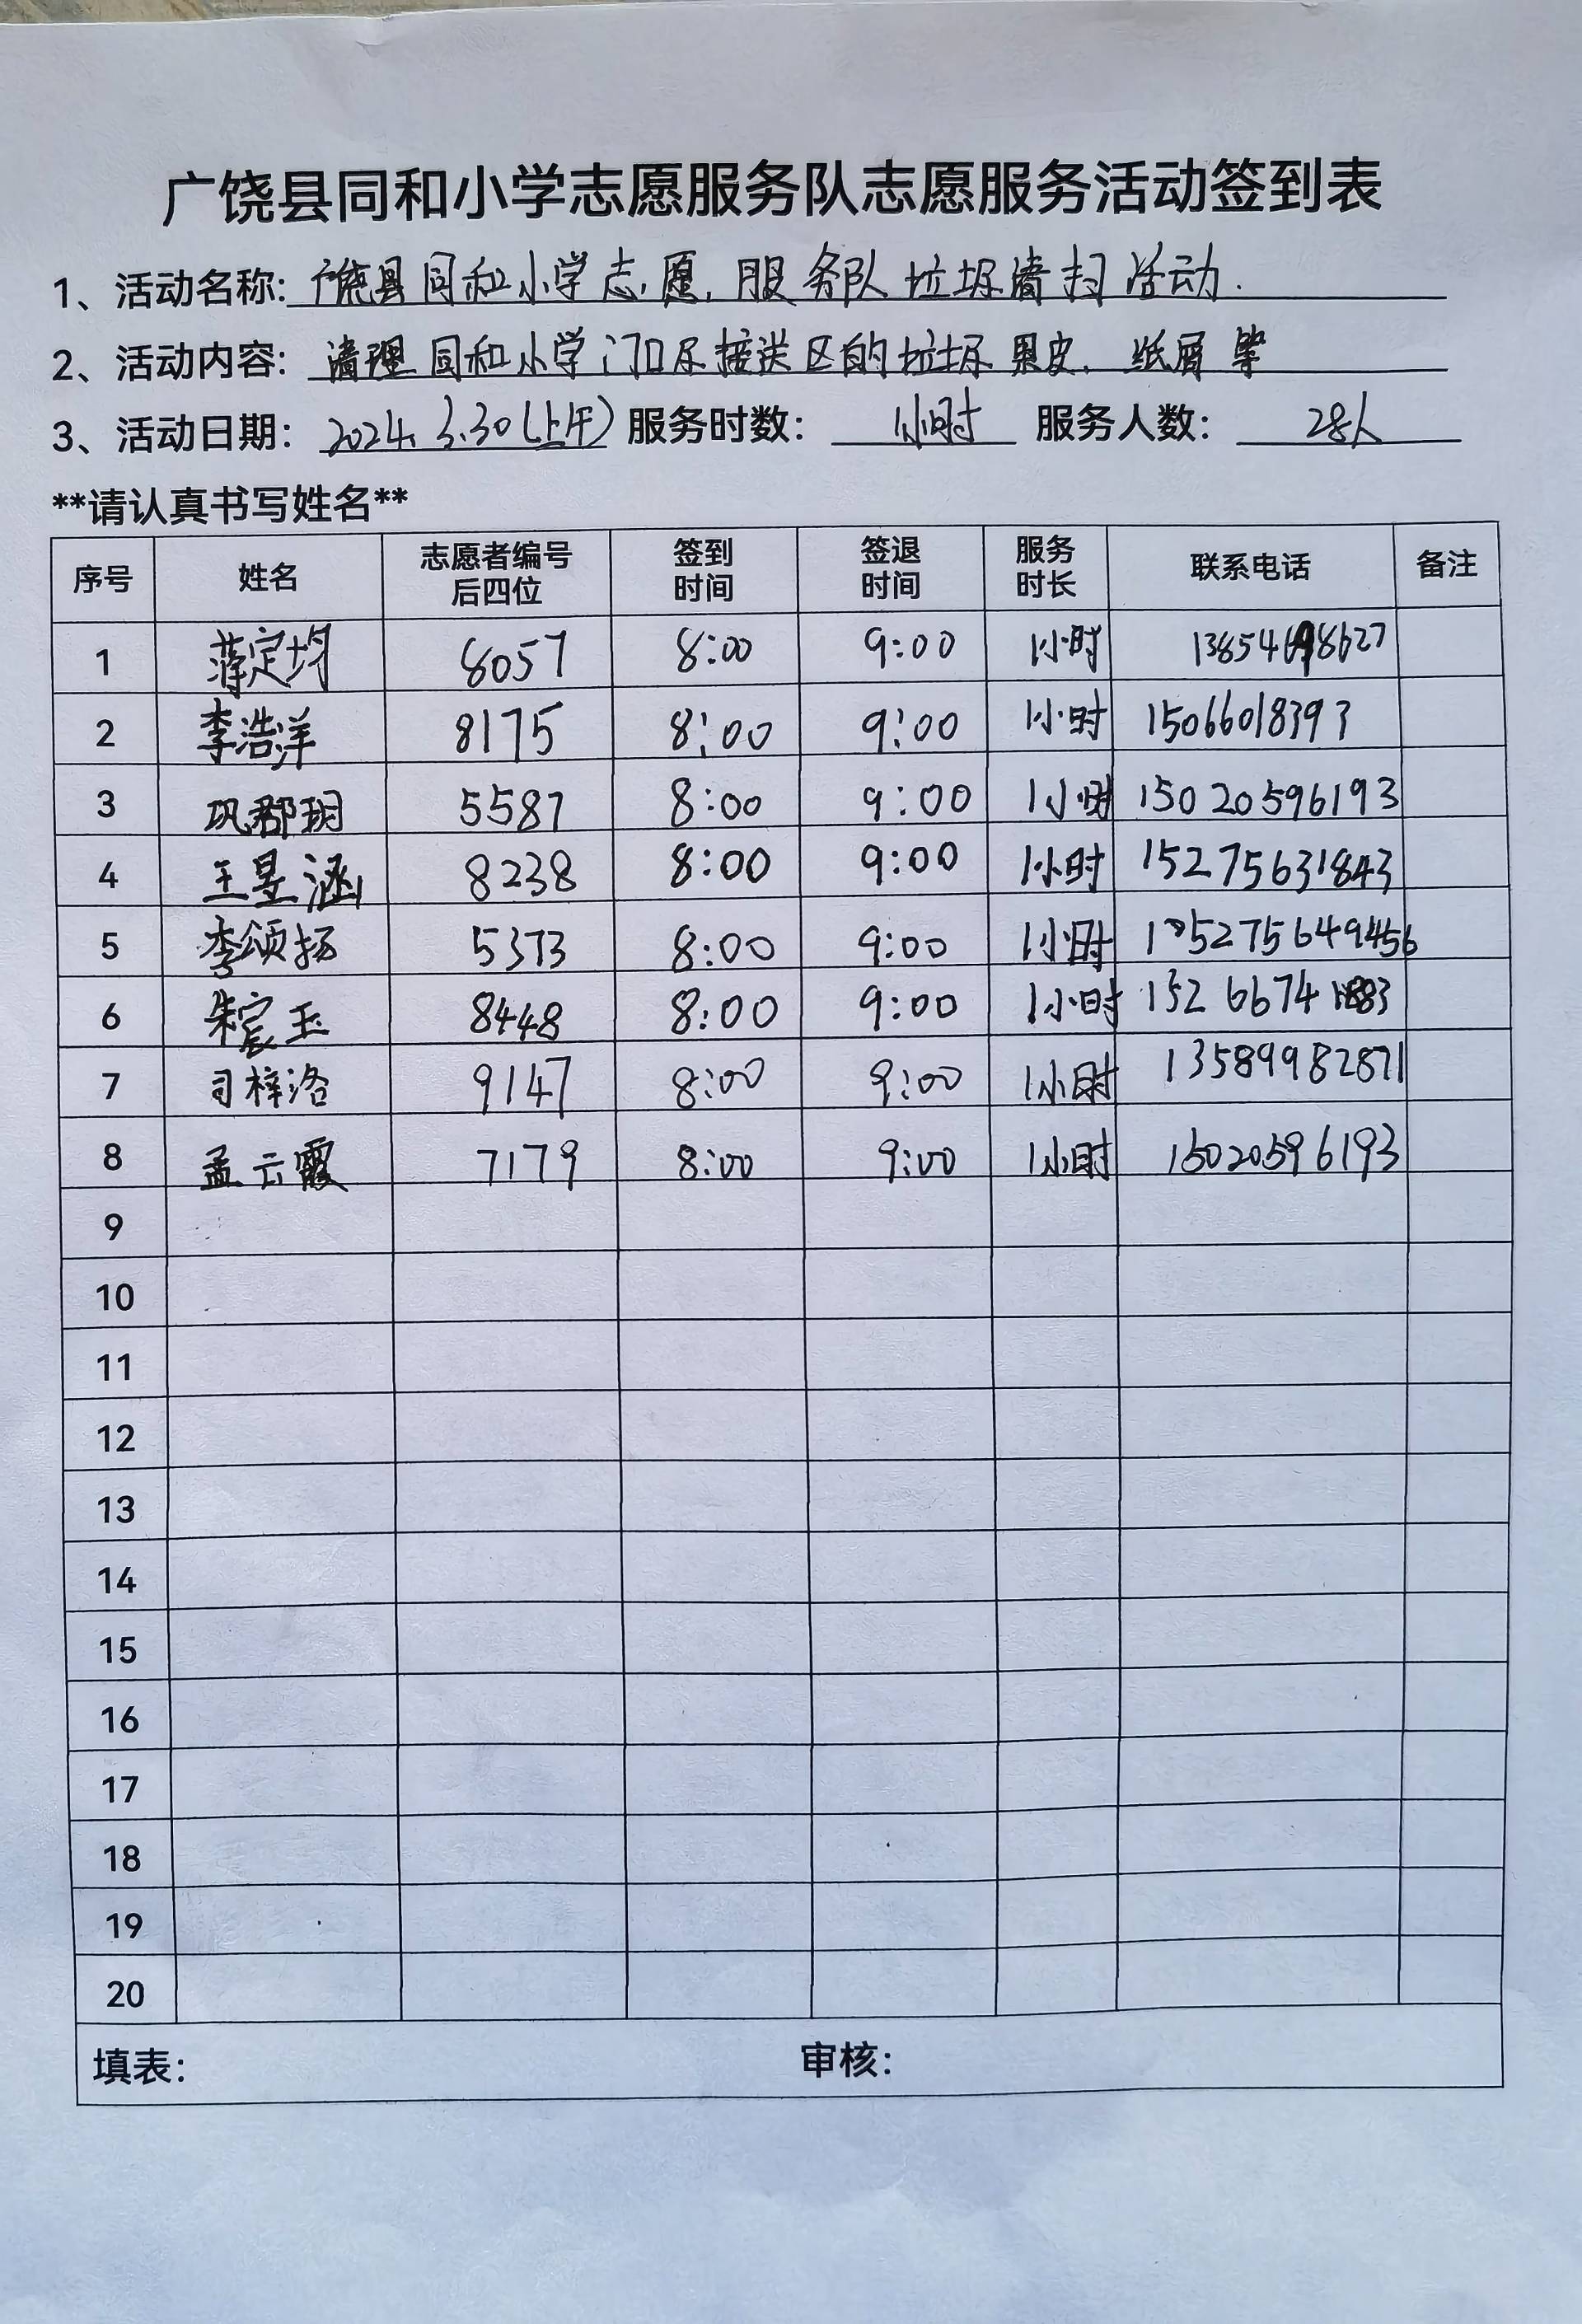 广饶县同和小学志愿服务队志愿服务活动签到表
1、活动名称: 广饶县同和小学志愿服务队垃圾清扫活动.
2、活动内容: 清理同和小学门口及接送区的垃圾果皮、纸屑等
3、活动日期: 2024. 3.30(上午) 服务时数: 1小时 服务人数: 28人
**请认真书写姓名**
序号 姓名 志愿者编号后四位 签到时间 签退时间 服务时长 联系电话 备注
1 蒋定均 8057 8:00 9:00 1小时
2 李浩洋 8175 8:00 9:00 1小时 15066018393
3 巩郡玥 5587 8:00 9:00 1小时 15020596193
4 王昱涵 8238 8:00 9:00 1小时 15275631843
5 李颂扬 5373 8:00 9:00 1小时
6 朱宸玉 8448 8:00 9:00 1小时
7 司梓洛 9147 8:00 9:00 1小时 13589982871
8 孟云霞 7179 8:00 9:00 1小时 15020596193
9
10
11
12
13
14
15
16
17
18
19
20
填表: 审核: